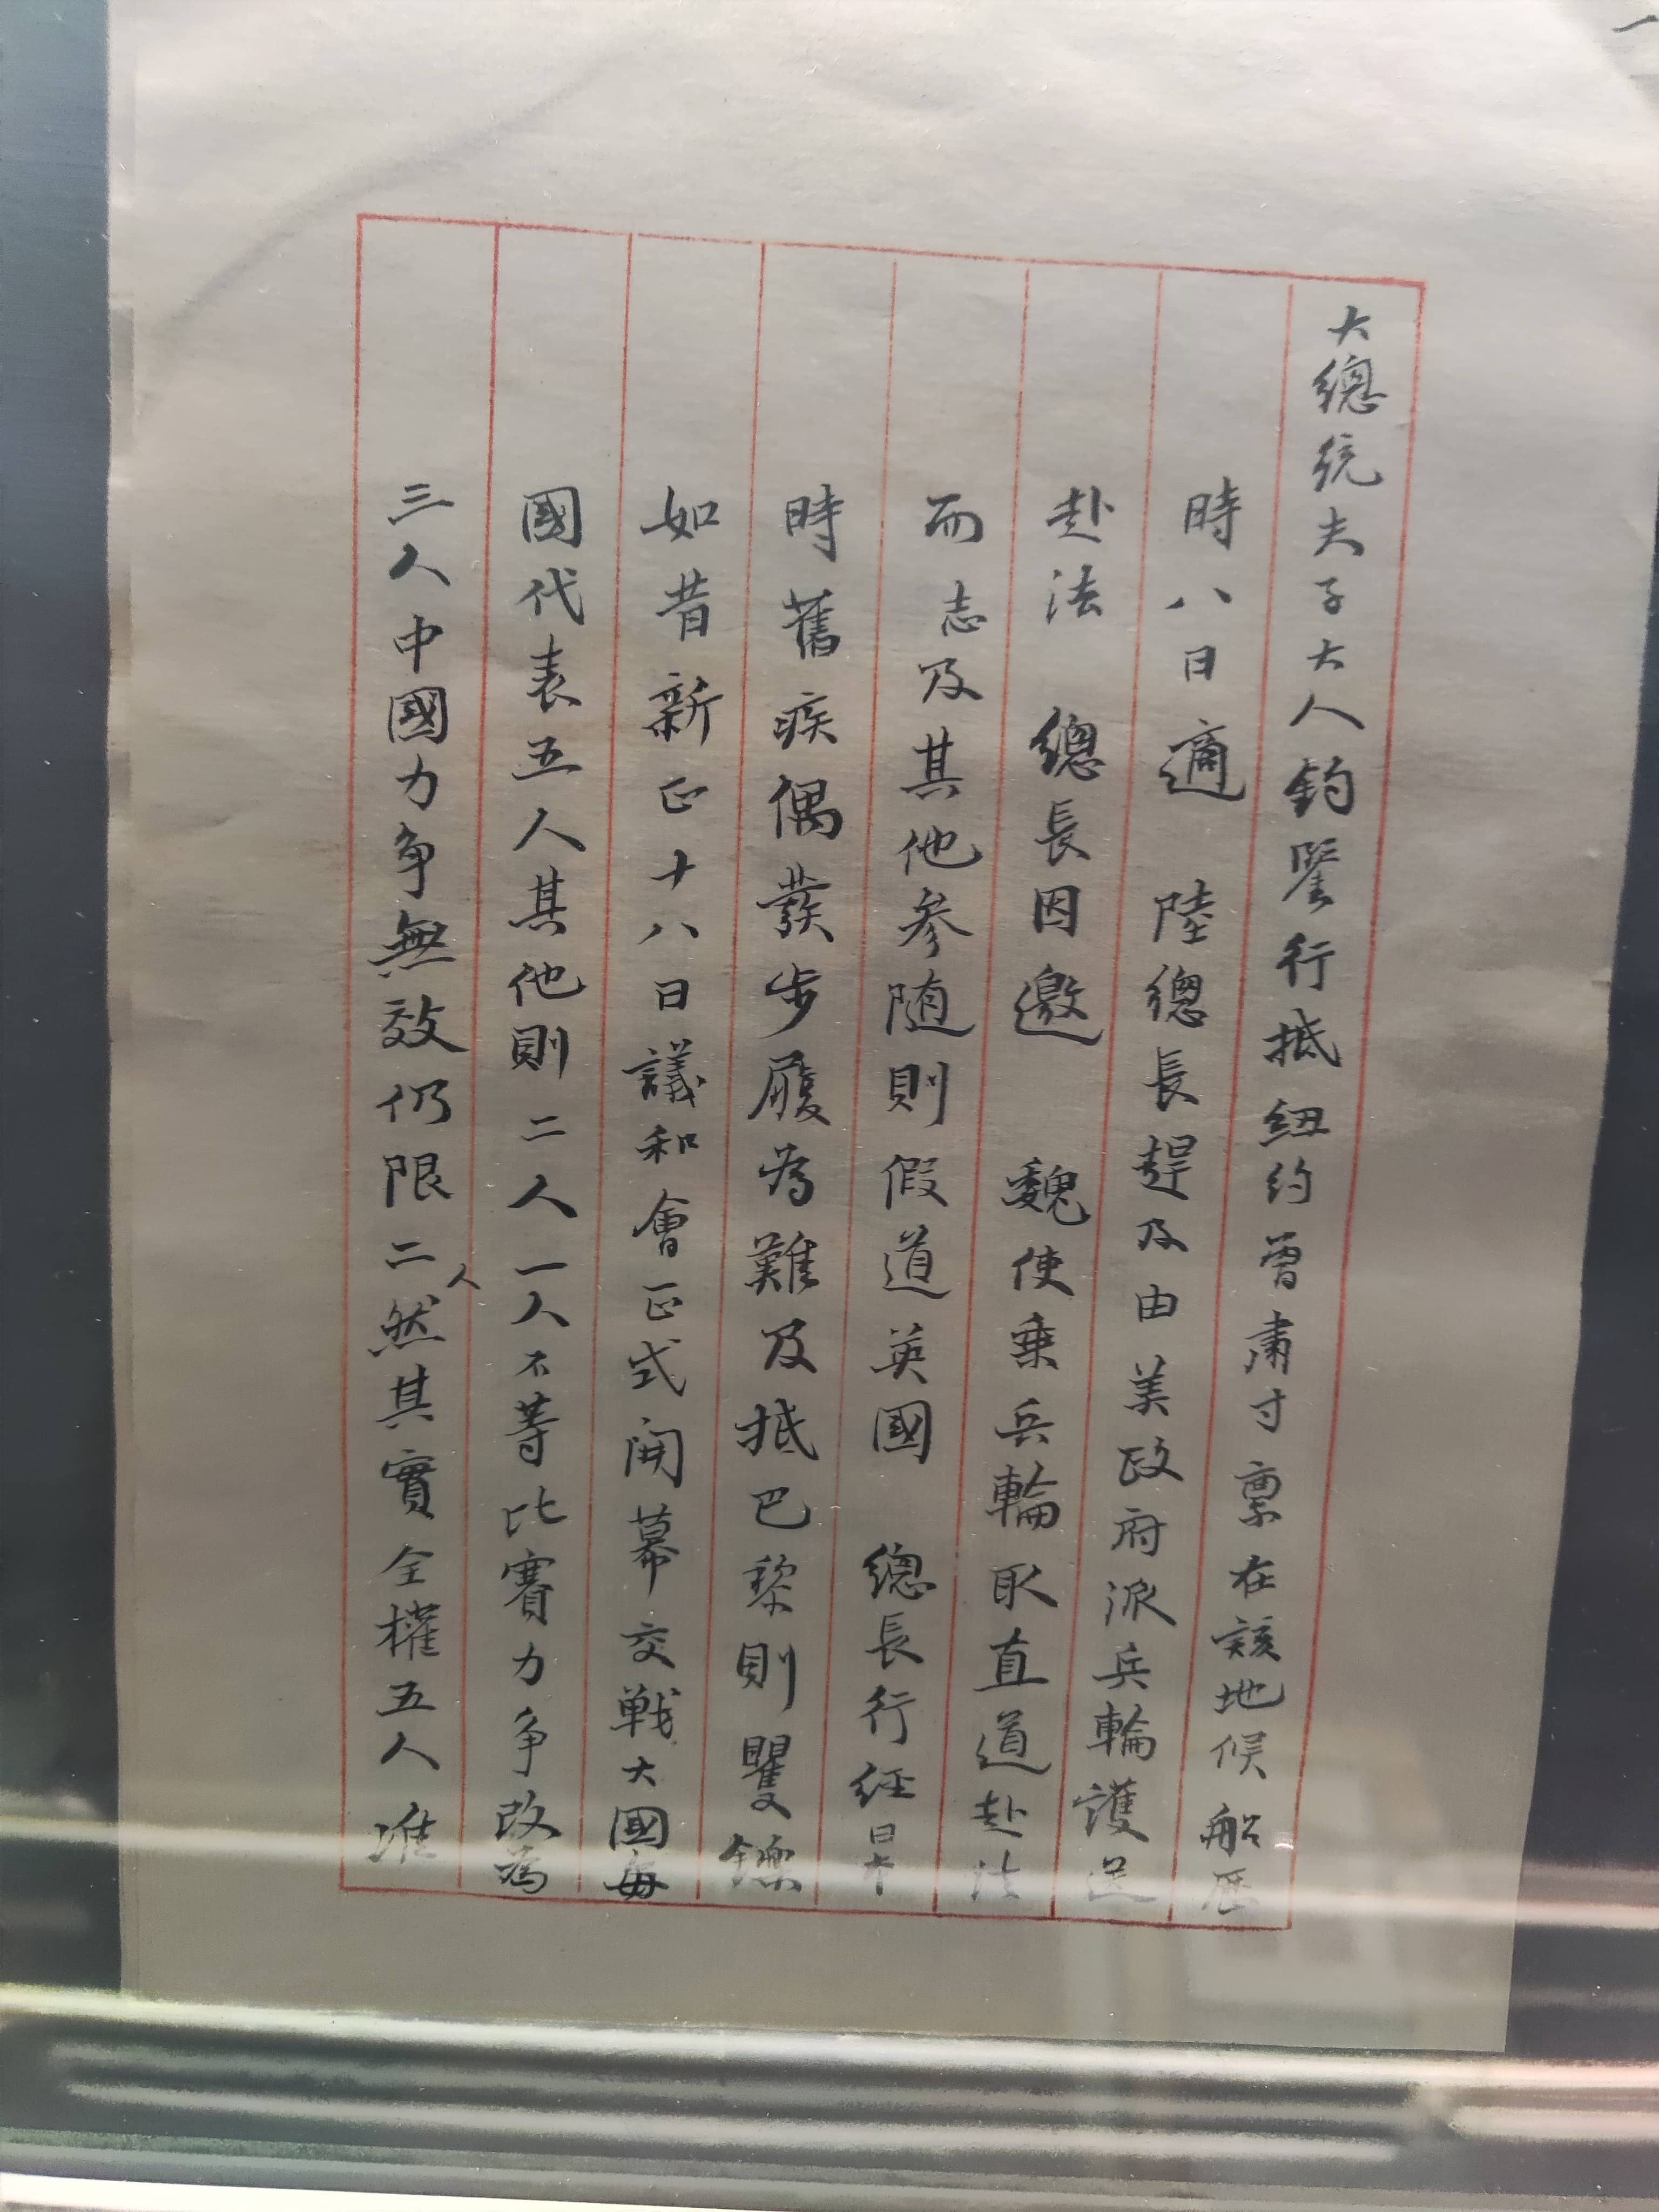 大總統夫子大人鈞鑒行抵紐約曾肅寸稟在該地候船歷
時八日適　陸總長趕及由美政府派兵輪護送
赴法　總長因邀　魏使乘兵輪取直道赴法
而志及其他參随則假道英國　總長行經日本
時舊疾偶發步履為難及抵巴黎則矍鑠
如昔新正十八日議和會正式開幕交戰大國每
國代表五人其他則二人一人不等比賽力爭改為
三人中國力爭無效仍限二人然其實全權五人准